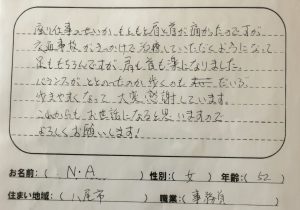 座り仕事のせいか、もともと肩と首が痛かったのですが
交通事故がきっかけで治療していただくようになって
足ももちろんですが、肩も首も楽になりました。
バランスがととのったのか歩くのも だいぶ
歩きやすくなって 大変感謝しています。
これからも お世話になると思いますので
よろしくお願いします!
お名前:( N・A )性別:( 女 )年齢:( 52 )
住まい地域:( 八尾市 )職業:( 事務員 )